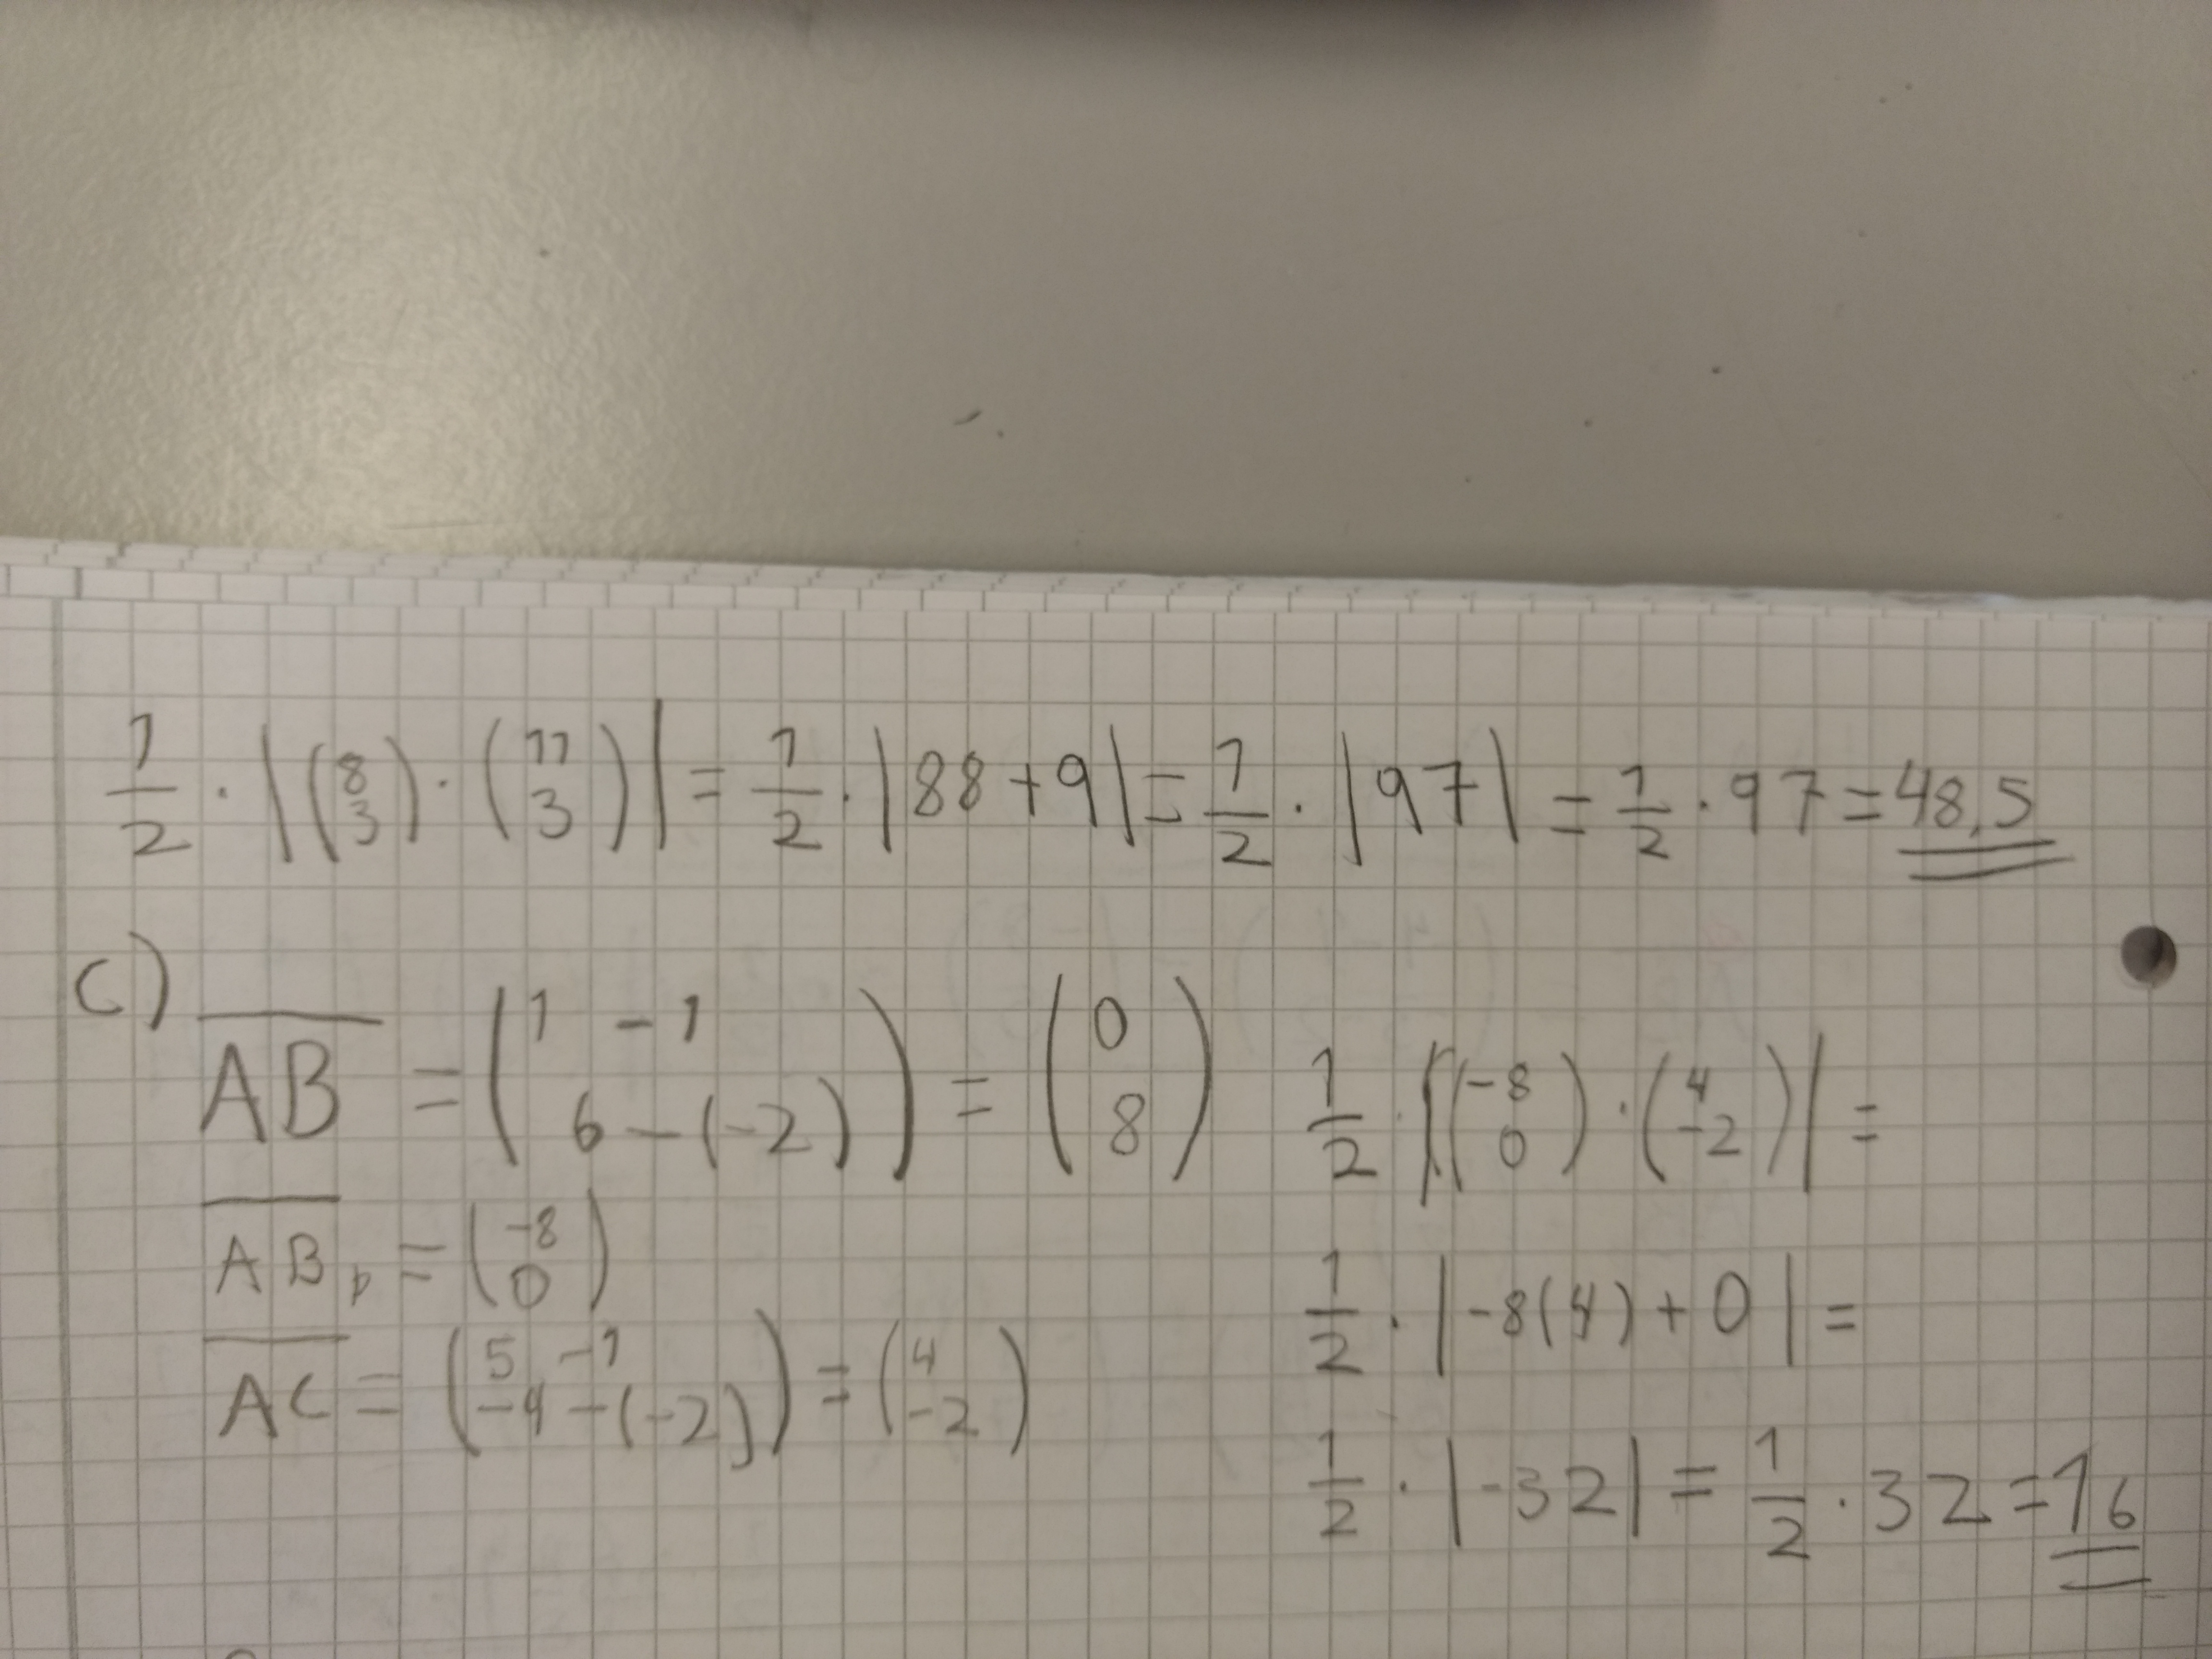 1/2 · |(8 3) · (11 3)| = 1/2 · |88 + 9| = 1/2 · |97| = 1/2 · 97 = 48,5
c)
AB = (1 - 1 6 - (-2)) = (0 8)
ABp = (-8 0)
AC = (5 - 1 -4 - (-2)) = (4 -2)
1/2 · |(-8 0) · (4 -2)| =
1/2 · |-8(4) + 0| =
1/2 · |-32| = 1/2 · 32 = 16